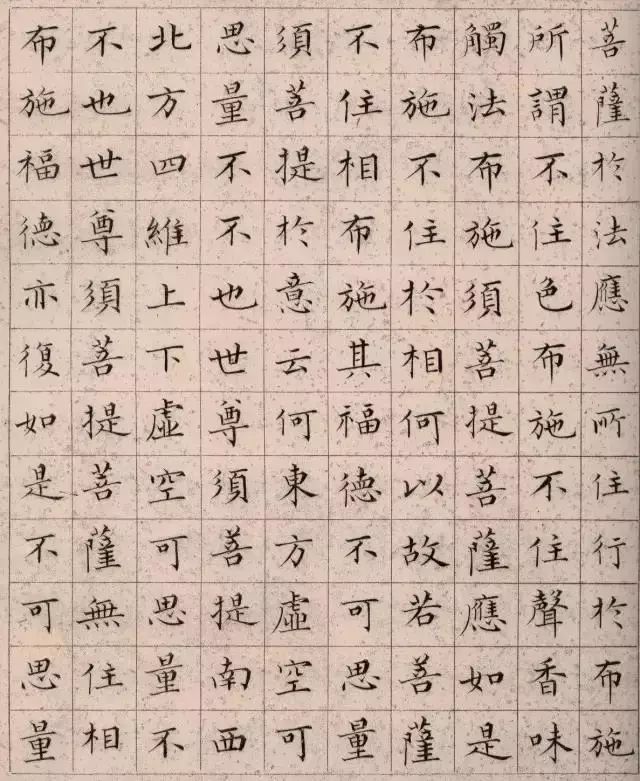 菩薩於法應無所住行於布施
所謂不住色布施不住聲香味
觸法布施須菩提菩薩應如是
布施不住於相何以故若菩薩
不住相布施其福德不可思量
須菩提於意云何東方虛空可
思量不不也世尊須菩提南西
北方四維上下虛空可思量不
不也世尊須菩提菩薩無住相
布施福德亦復如是不可思量